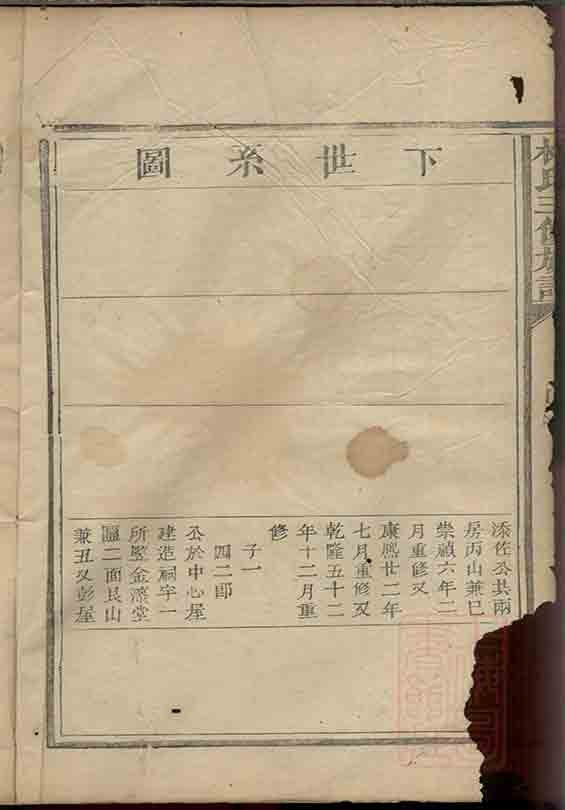 下世系圖
添佐公共兩
房丙山兼巳
崇禎六年二
月重修又
康熙廿二年
七月重修又
乾隆五十二
年十二月重
修
子一
四二郎
公於中心屋
建造祠宇一
所竪金
堂
區二面艮山
兼丑又彭屋
林氏三修族譜